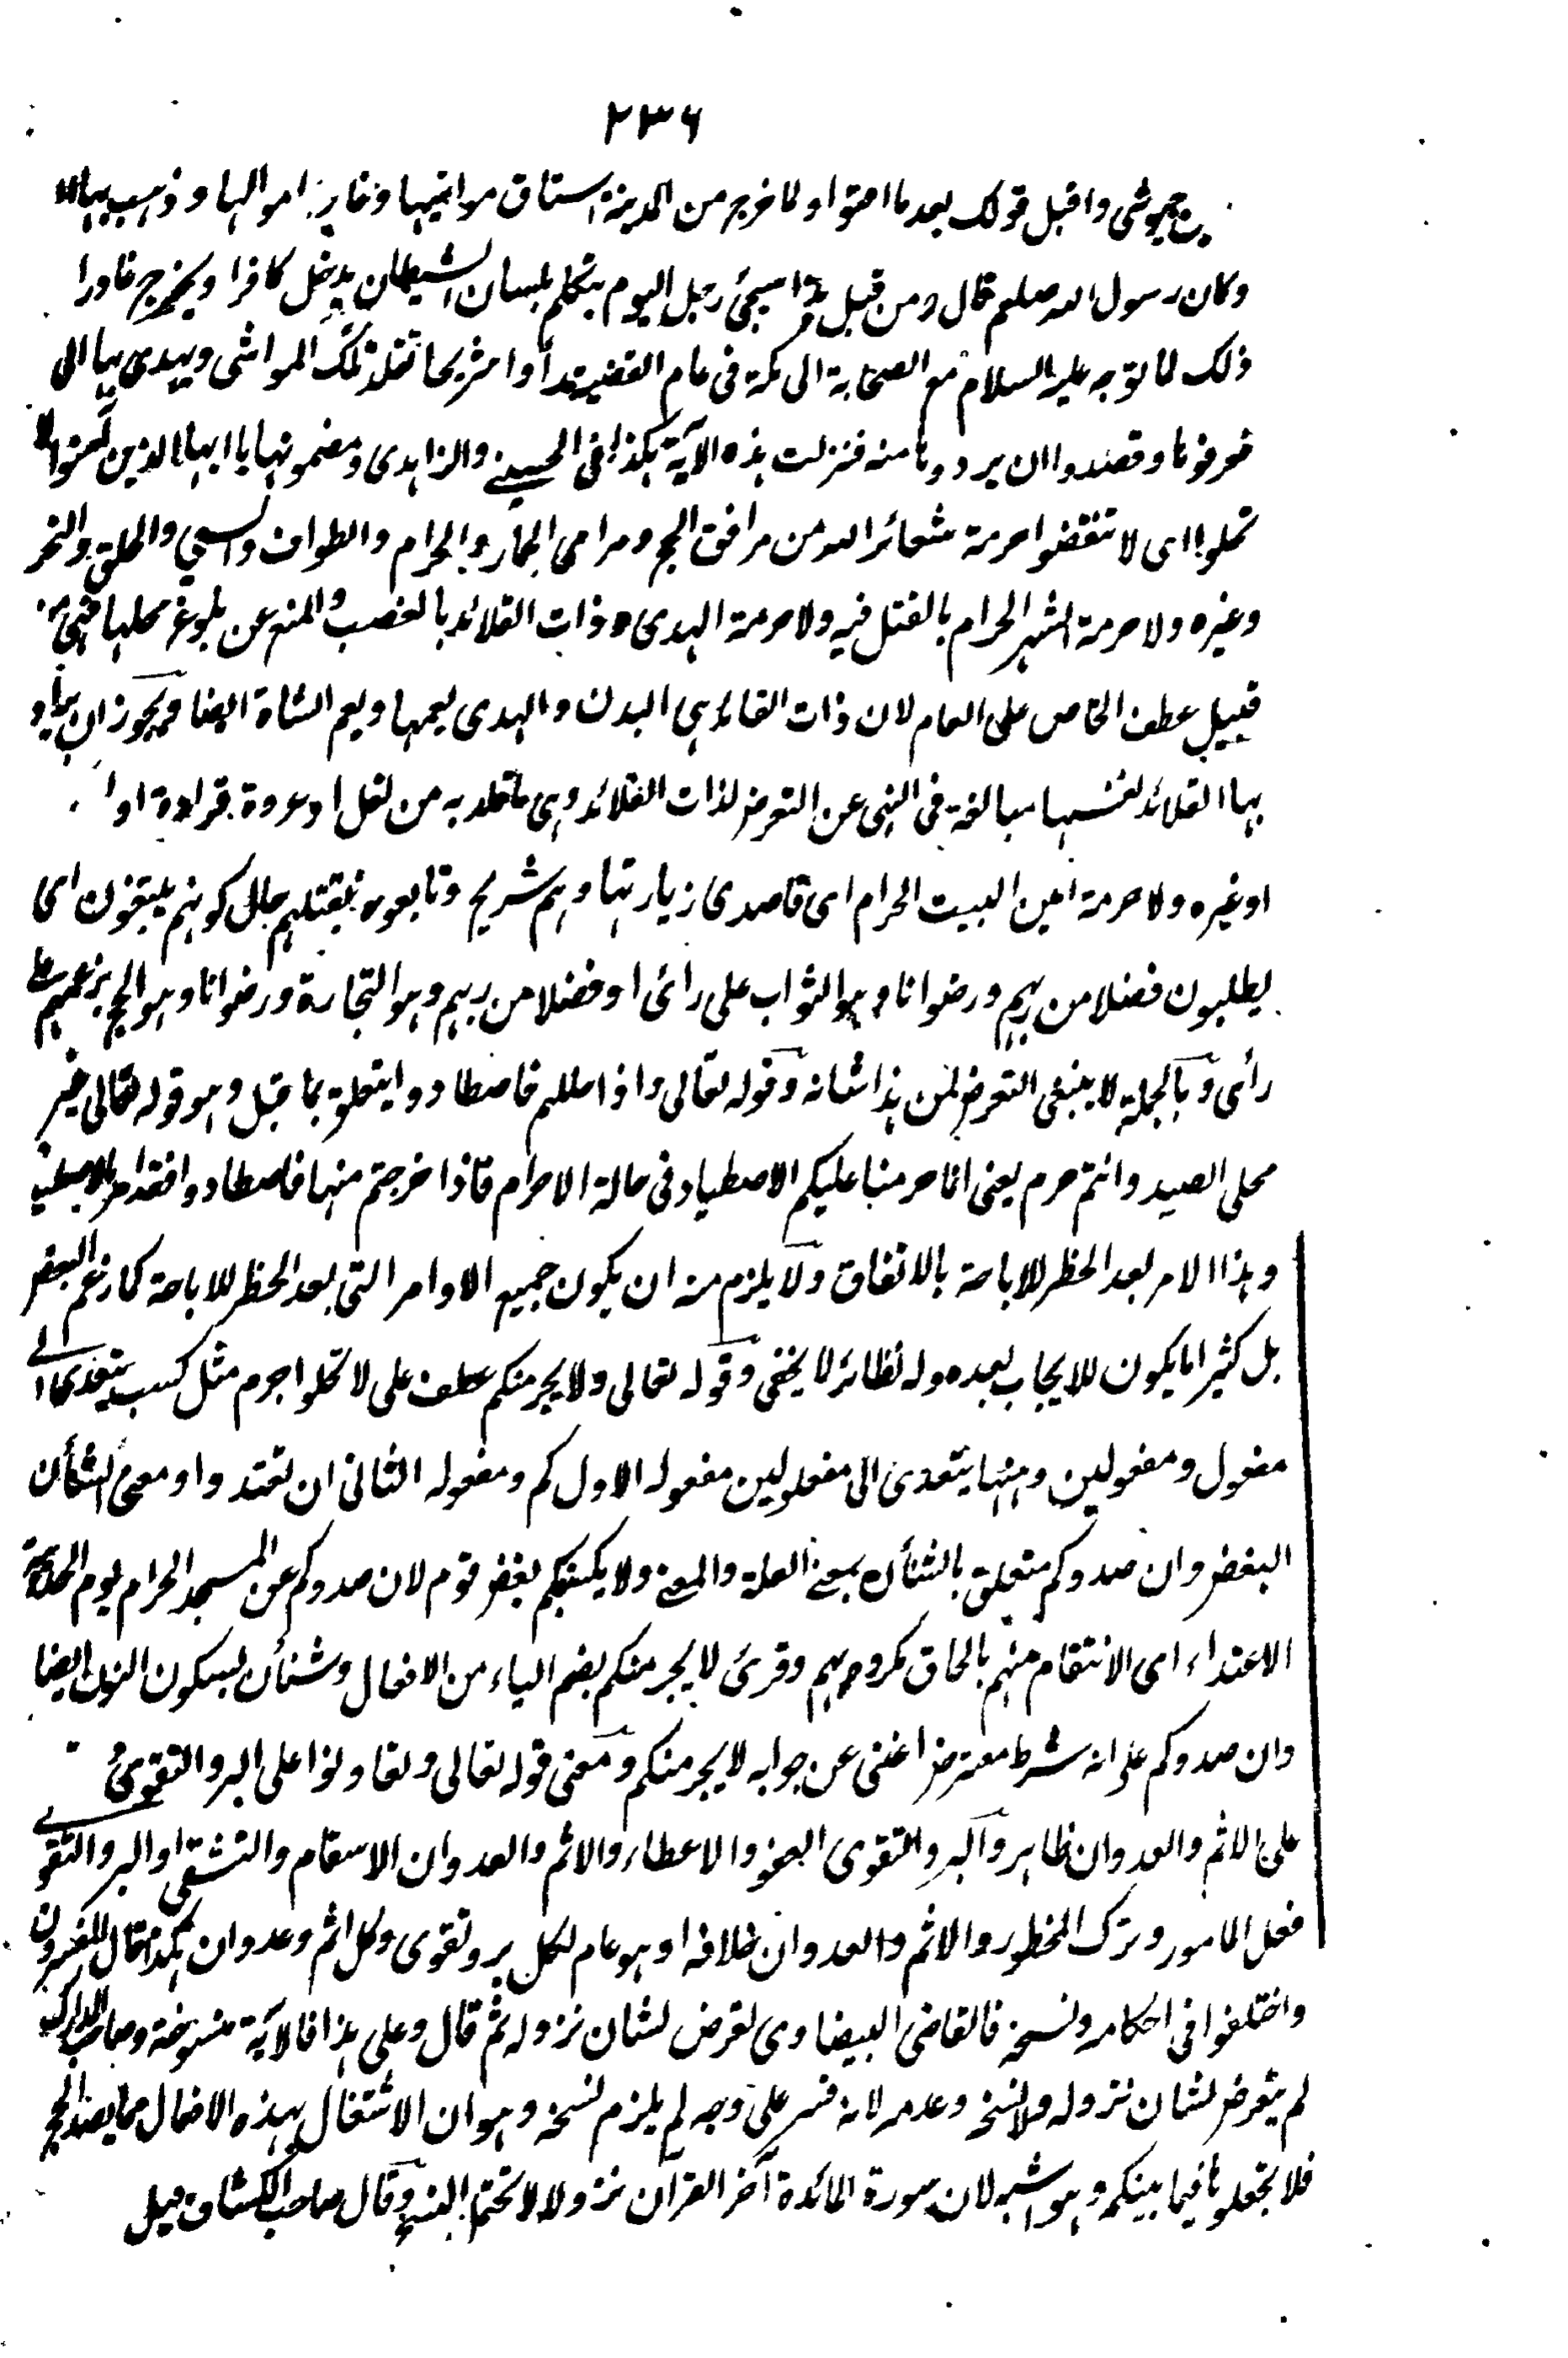 ٢٣٦
جيوشى واقبل قولك بعد ما احتوا ولما خرج من المدينة استاق مواشيها وغارب اموالها وذهب بها
وكان رسول الله صلعم قال ومن قبل هذا سيجئ رجل اليوم يتكلم بلسان الشيطان يدخل كافرا ويخرج غادرا
ذلك لما توجه عليه السلام مع الصحابة الى مكة فى عام القضية رأوا شريحا تقلد تلك المواشى ويهدى بها الى
فعرفوها وقصدوا ان يردوها منه فنزلت هذه الآية هكذا فى الحسينى والزاهدى ومضمونها يا ايها الذين آمنوا لا
تحلوا اى لا تنقضوا حرمة شعائر الله من مرافق الحج ومرامى الجمار والحرام والطواف والسعى والحلق والنحر
وغيره ولا حرمة الشهر الحرام بالقتل فيه ولا حرمة الهدى وذات القلائد بالغصب والمنع عن بلوغ محلها فهى من
قبيل عطف الخاص على العام لان ذات القلائد هى البدن والهدى يعمها ويعم الشاة ايضا ويجوز ان يراد
بها القلائد نفسها مبالغة فى النهى عن التعرض لذات القلائد وهى ما تقلد به من نعل او عروة قرادة او
او غيره ولا حرمة امين البيت الحرام اى قاصدى زيارتها وهم شريح وتابعوه بقتلهم حال كونهم يبتغون اى
يطلبون فضلا من ربهم ورضوانا وهو الثواب على رائ او فضلا من ربهم وهو التجارة ورضوانا وهو الحج بزعمهم على
رأى وبالجملة لا ينبغى التعرض لمن هذا شانه وقوله تعالى واذا حللتم فاصطادوا يتعلق بما قبل وهو قوله تعالى غير
محلى الصيد وانتم حرم يعنى انا حرمنا عليكم الاصطياد فى حالة الاحرام فاذا خرجتم منها فاصطادوا فقد امر بالاصطياد
وهذا الامر بعد الحظر للاباحة بالاتفاق ولا يلزم منه ان يكون جميع الاوامر التى بعد الحظر للاباحة كما زعم البعض
بل كثيرا ما يكون للايجاب بعده وله نظائر لا يخفى وقوله تعالى ولا يجرمنكم عطف على لا تحلوا جرم مثل كسب يتعدى الى
مفعول ومفعولين ومنها يتعدى الى مفعولين مفعوله الاول كم ومفعوله الثانى ان تعتدوا ومعنى الشنأن
البغض وان صدوكم متعلق بالشنأن بمعنى العلة والمعنى ولا يكسبكم بغض قوم لان صدوكم عن المسجد الحرام يوم الحديبية
الاعتداء اى الانتقام منهم بالحاق مكروه بهم وقرئ لا يجرمنكم بضم الياء من الافعال وشنأن بسكون النون ايضا
وان صدوكم على انه شرط معترض اغنى عن جوابه لا يجرمنكم ومعنى قوله تعالى وتعاونوا على البر والتقوى
على الاثم والعدوان ظاهر والبر والتقوى العفو والاعطاء والاثم والعدوان الاسقام والتشفى او البر والتقوى
فعل المامور وترك المحظور والاثم والعدوان خلافه او هو عام لكل بر وتقوى وكل اثم وعدوان هكذا قال المفسرون
واختلفوا فى احكامه ونسخه فالقاضى البيضاوى تعرض لشان نزوله ثم قال وعلى هذا فالآية منسوخة وصاحب المدارك
لم يتعرض لشان نزوله ولا نسخ وعدمه لانه فسر على وجه لم يلزم نسخه وهو ان الاشتغال بهذه الافعال مما يصد الحج
فلا تجعلوها فيما بينكم وهو اشبه لان سورة المائدة آخر القرآن نزولا لا تحتم النسخ وقال صاحب الكشاف قيل